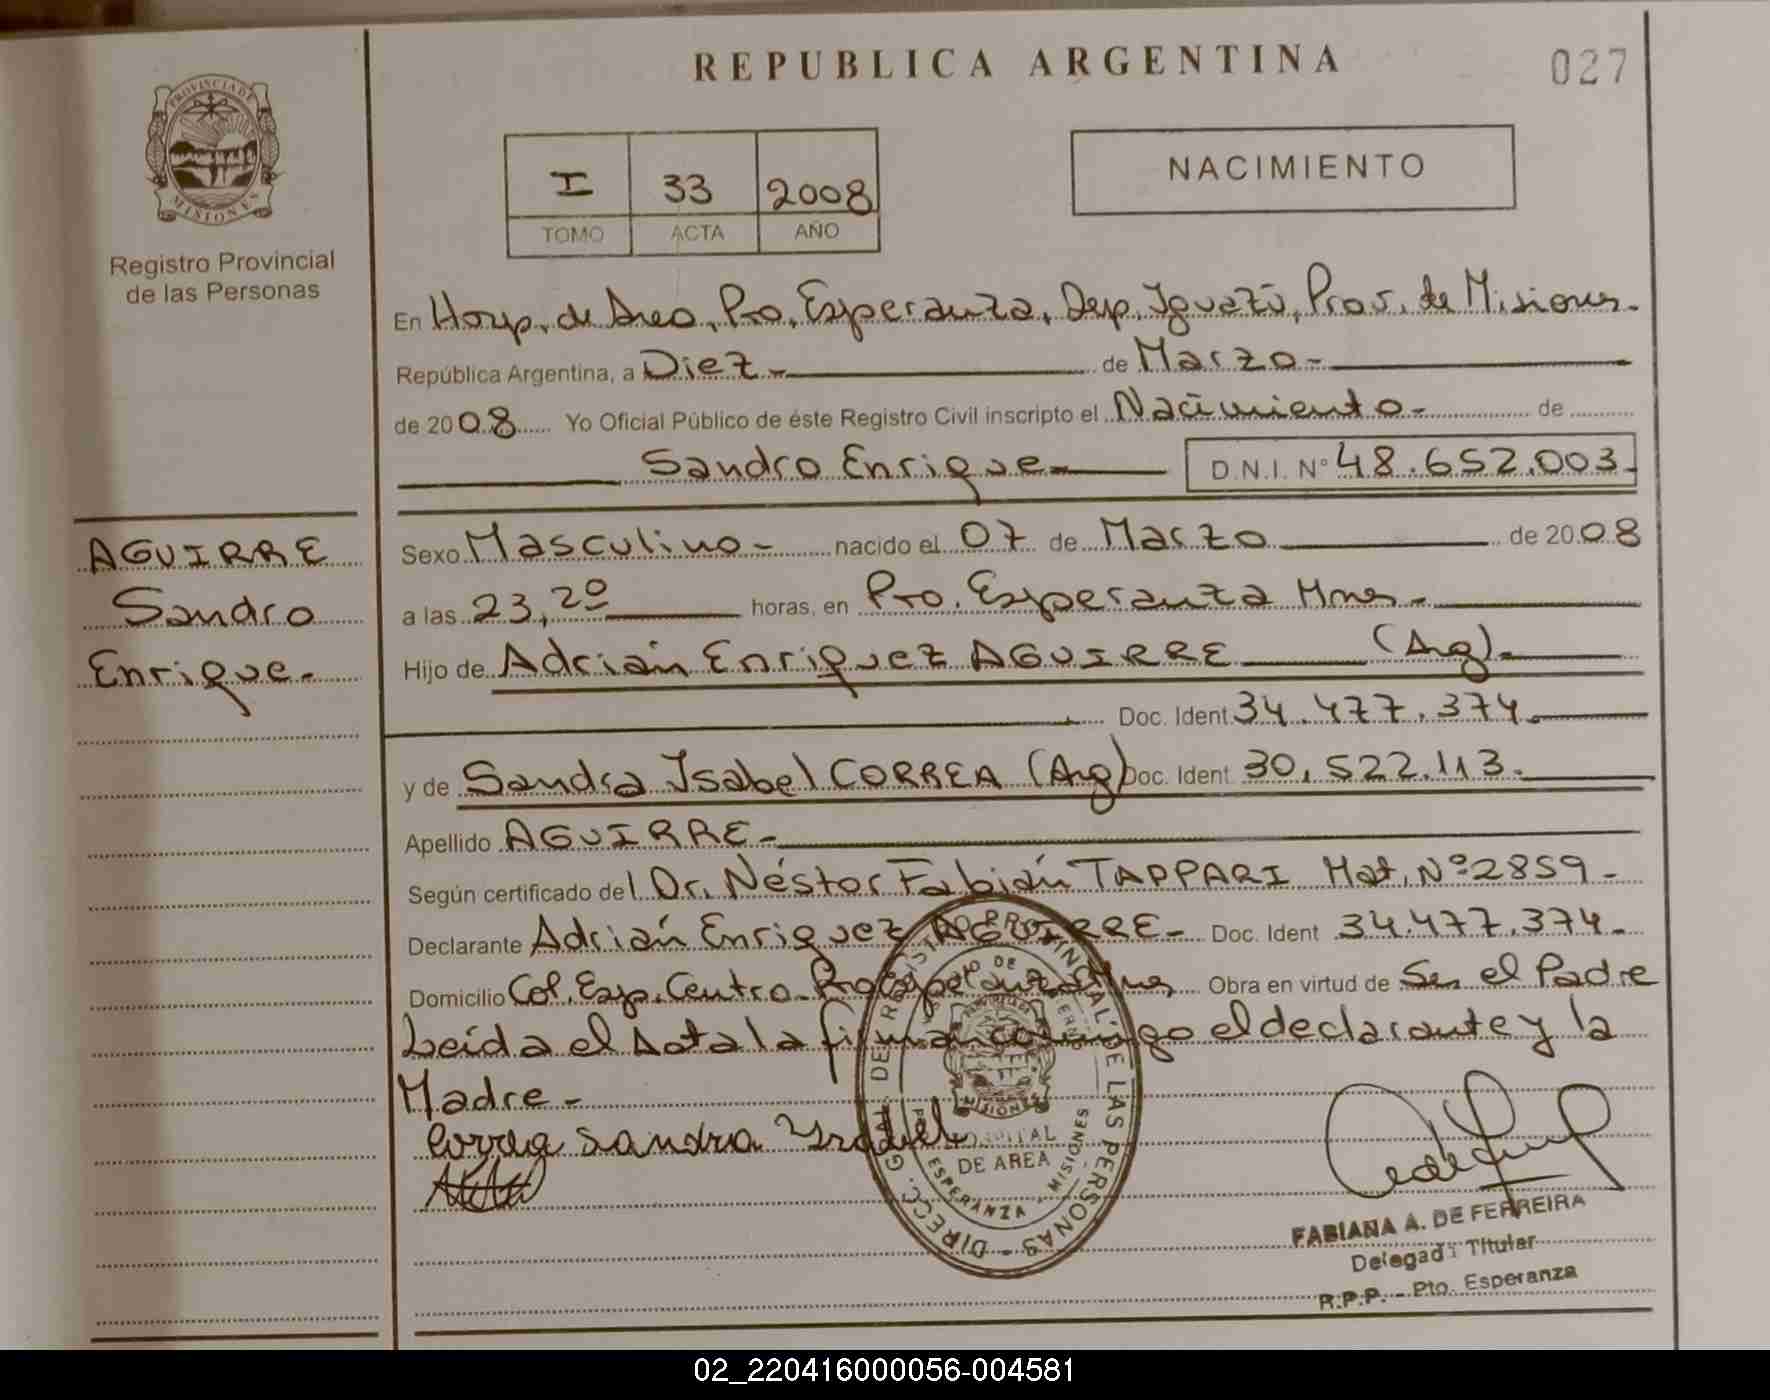 REPUBLICA ARGENTINA
027
PROVINCIA DE
MISIONES
Registro Provincial
de las Personas
I 33 2008
TOMO ACTA AÑO
NACIMIENTO
En Hosp. de Area, Pto. Esperanza, Dep. Iguazú, Prov. de Misiones.
República Argentina, a Diez - de Marzo -
de 2008 Yo Oficial Público de éste Registro Civil inscripto el Nacimiento - de
Sandro Enrique - D.N.I. N° 48.652.003 -
AGUIRRE
Sandro
Enrique -
Sexo Masculino - nacido el 07 de Marzo de 2008
a las 23,20 horas, en Pto. Esperanza Mnes -
Hijo de Adrián Enriquez AGUIRRE (Arg) -
Doc. Ident. 34.477.374 -
y de Sandra Isabel CORREA (Arg) Doc. Ident. 30.522.113 -
Apellido AGUIRRE -
Según certificado del Dr. Néstor Fabián TAPPARI Mat. N° 2859 -
Declarante Adrián Enriquez AGUIRRE - Doc. Ident 34.477.374 -
Domicilio Col. Esp. Centro - Pto Esperanza Mnes Obra en virtud de Ser el Padre
Leída el Acta la firman conmigo el declarante y la
Madre -
Correa Sandra Ysabel
DIRECC. GRAL. DEL REGISTRO PROVINCIAL DE LAS PERSONAS
MISIONES
HOSPITAL
DE AREA
ESPERANZA - MISIONES
FABIANA A. DE FERREIRA
Delegada Titular
R.P.P. - Pto. Esperanza
02_220416000056-004581